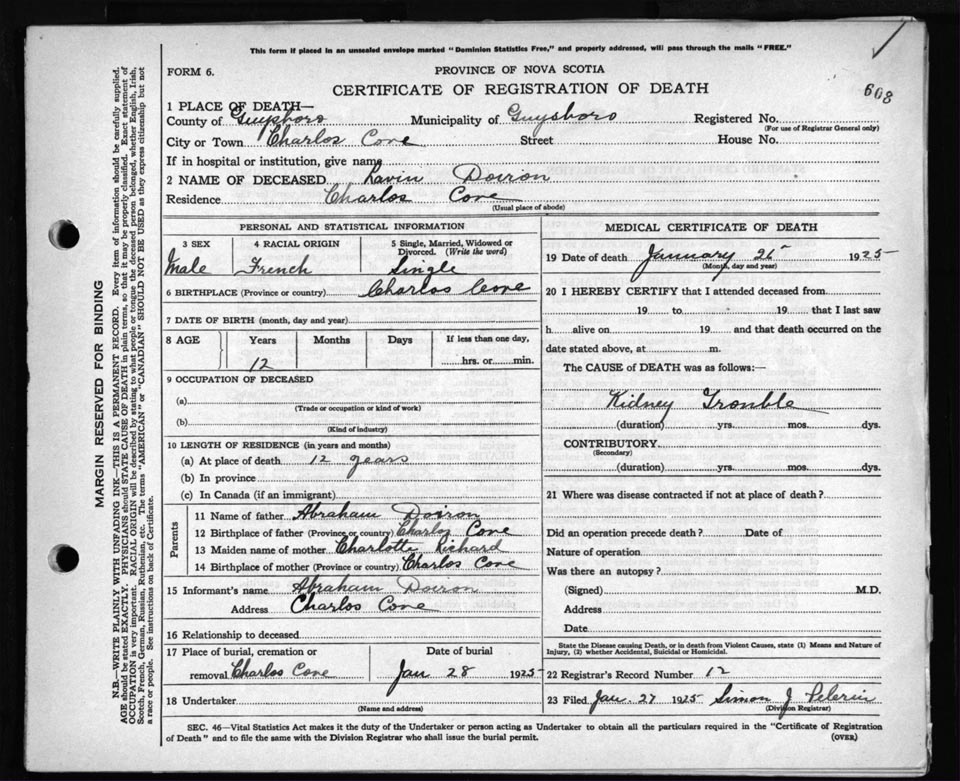 This form if placed in an unsealed envelope marked "Dominion Statistics Free," and properly addressed, will pass through the mails "FREE."
FORM 6.
PROVINCE OF NOVA SCOTIA
CERTIFICATE OF REGISTRATION OF DEATH
608
1 PLACE OF DEATH—
County of Guysboro Municipality of Guysboro Registered No.
(For use of Registrar General only)
City or Town Charlos Cove Street House No.
If in hospital or institution, give name
2 NAME OF DECEASED Lavin Doiron
Residence Charlos Cove
(Usual place of abode)
PERSONAL AND STATISTICAL INFORMATION
3 SEX 4 RACIAL ORIGIN 5 Single, Married, Widowed or Divorced. (Write the word)
Male French Single
6 BIRTHPLACE (Province or country) Charlos Cove
7 DATE OF BIRTH (month, day and year)
8 AGE Years Months Days If less than one day,
12 hrs. or min.
9 OCCUPATION OF DECEASED
(a)
(Trade or occupation or kind of work)
(b)
(Kind of industry)
10 LENGTH OF RESIDENCE (in years and months)
(a) At place of death 12 years
(b) In province
(c) In Canada (if an immigrant)
Parents
11 Name of father Abraham Doiron
12 Birthplace of father (Province or country) Charlos Cove
13 Maiden name of mother Charlotte Richard
14 Birthplace of mother (Province or country) Charlos Cove
15 Informant's name Abraham Doiron
Address Charlos Cove
16 Relationship to deceased
17 Place of burial, cremation or Date of burial
removal Charlos Cove Jan 28 1925
18 Undertaker
(Name and address)
MEDICAL CERTIFICATE OF DEATH
19 Date of death January 26 1925
(Month, day and year)
20 I HEREBY CERTIFY that I attended deceased from
19 to 19 that I last saw
h alive on 19 and that death occurred on the
date stated above, at m.
The CAUSE of DEATH was as follows:—
Kidney Trouble
(duration) yrs. mos. dys.
CONTRIBUTORY
(Secondary)
(duration) yrs. mos. dys.
21 Where was disease contracted if not at place of death?
Did an operation precede death? Date of
Nature of operation
Was there an autopsy?
(Signed) M.D.
Address
Date
State the Disease causing Death, or in death from Violent Causes, state (1) Means and Nature of
Injury, (2) whether Accidental, Suicidal or Homicidal.
22 Registrar's Record Number 12
23 Filed Jan 27 1925 Simon J Pelerin
(Division Registrar)
SEC. 46—Vital Statistics Act makes it the duty of the Undertaker or person acting as Undertaker to obtain all the particulars required in the "Certificate of Registration
of Death" and to file the same with the Division Registrar who shall issue the burial permit.
(OVER)
MARGIN RESERVED FOR BINDING
N.B.—WRITE PLAINLY WITH UNFADING INK—THIS IS A PERMANENT RECORD. Every item of information should be carefully supplied.
AGE should be stated EXACTLY. PHYSICIANS should STATE CAUSE OF DEATH in plain terms, so that it may be properly classified. Exact statement of
OCCUPATION is very important. RACIAL ORIGIN will be described by stating to what people or tongue the deceased person belonged, whether English, Irish,
Scotch, French, German, Russian, Ruthenian, etc. The terms "AMERICAN" or "CANADIAN" SHOULD NOT BE USED as they express citizenship but not
a race or people. See instructions on back of Certificate.